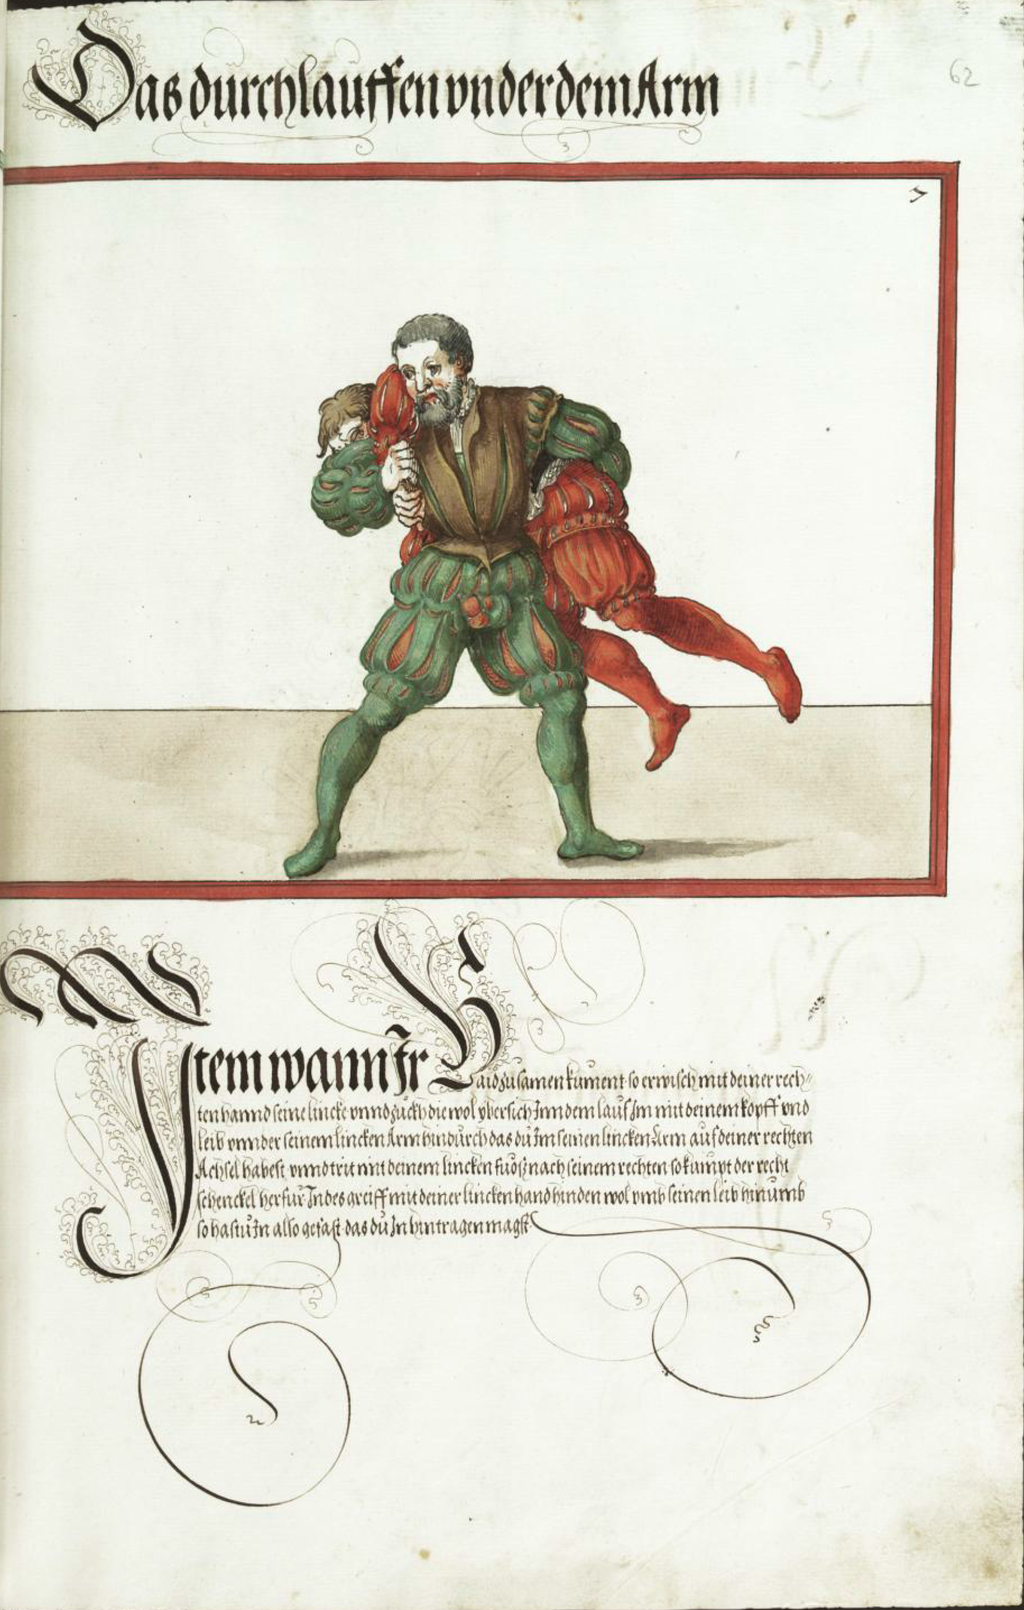 62
Das durchlauffen vnder dem Arm
7
Item wann Ir Baid zusamen kument so erwisch mit deiner rech-
ten hannd seine lincke vnnd zuckh die wol vbersich Inn dem lauf Im mit deinem kopff vnd
leib vnnder seinem lincken Arm hindurch das du Im seinen lincken Arm auf deiner rechten
Achsel habest vnnd trit mit deinem lincken fuoß nach seinem rechten so kumpt der recht
schenckel herfur Indes greiff mit deiner lincken hand hinden wol vmb seinen leib hinumb
so hastu In also gefast das du In hintragen magst